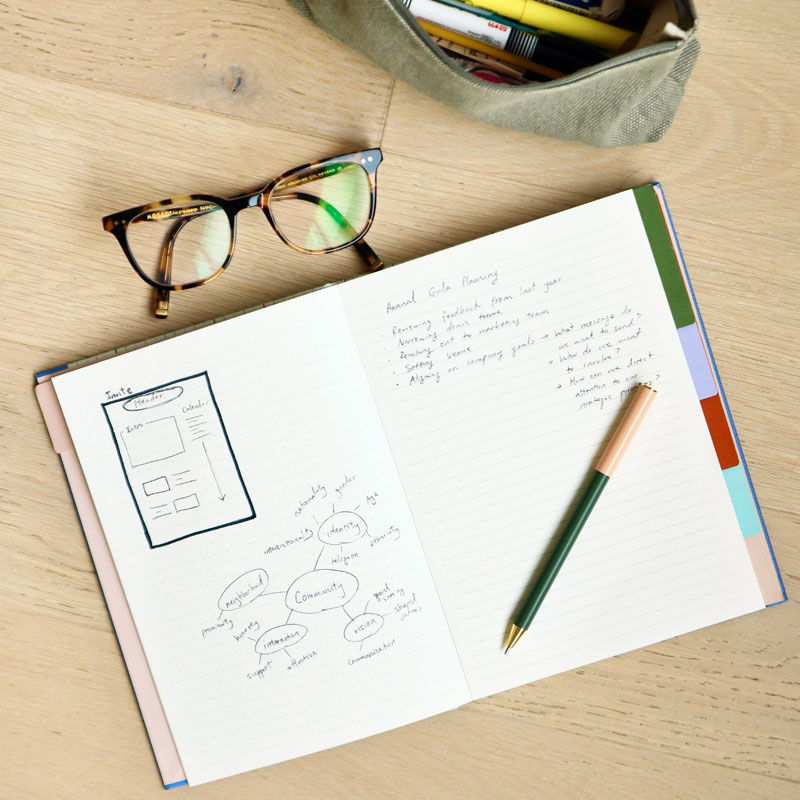 Invite
Header
Intro
Calendar
nationality
gender
Age
intersectionality
identity
ethnicity
religion
neighborhood
Community
proximity
honesty
interaction
vision
goal
shared
support
affection
communication
Annual Gala Planning
Reviewing feedback from last year
• Narrowing down theme
• Reaching out to marketing team
• Setting venue
• Aligning on company goals → What message do
we want to send?
→ Who do we want
to involve?
→ How can we direct
attention to our
strategic